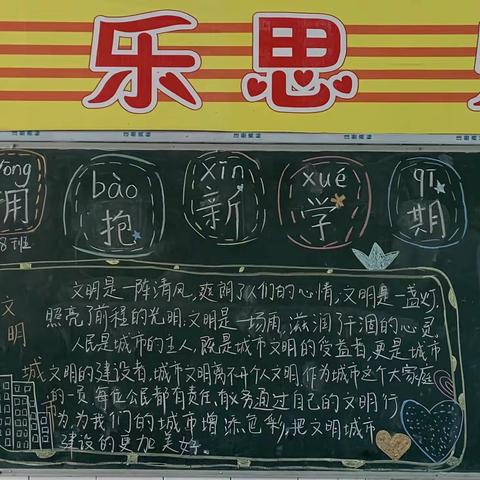 乐思
yōng bào xīn xué qī
拥抱新学期
8班
文明城
文明是一阵清风,爽朗了人们的心情,文明是一盏灯,
照亮了前程的光明.文明是一场雨,滋润了干涸的心灵.
人民是城市的主人,既是城市文明的受益者,更是城市
文明的建设者,城市文明离不开个人文明.作为城市这个大家庭
的一员每位公民都有责任,有义务通过自己的文明行
为,为我们的城市增添色彩,把文明城市
建设的更加美好。